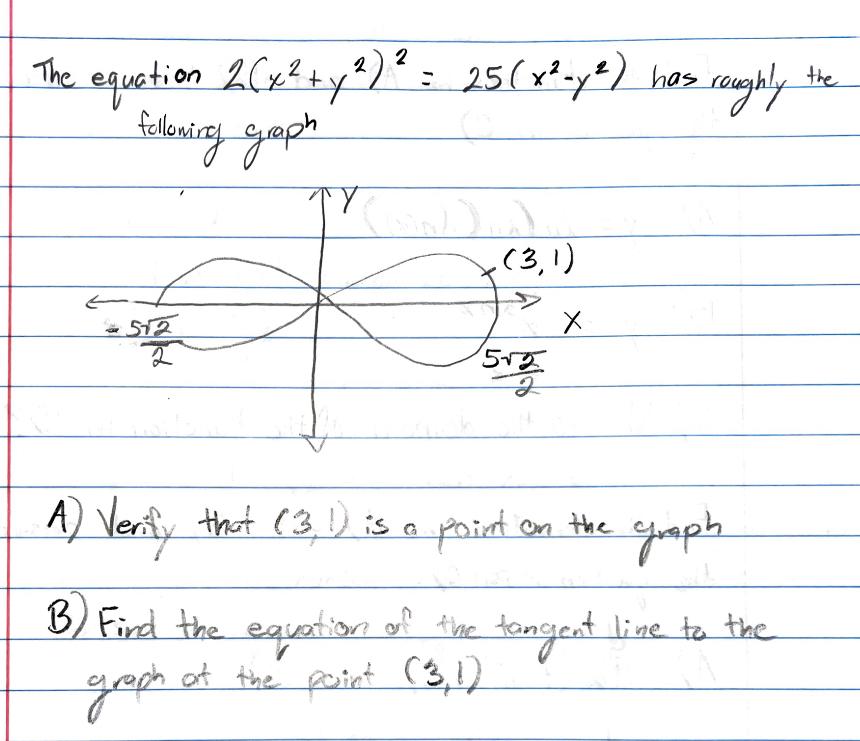 The equation 2(x² + y²)² = 25(x²-y²) has roughly the
following graph
Y
(3,1)
X
- 5√2/2
5√2/2
A) Verify that (3,1) is a point on the graph
B) Find the equation of the tangent line to the
graph at the point (3,1)